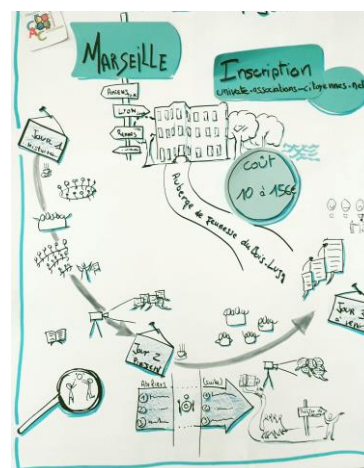 MARSEILLE
Inscription
univete-associations-citoyennes.net
AMIENS
LYON
RENNES
coût
10 à 156€
Auberge de Jeunesse du Bois-Luzy
JOUR 1
JOUR 2
JOUR 3
ATELIERS
(suite)
1
2
3